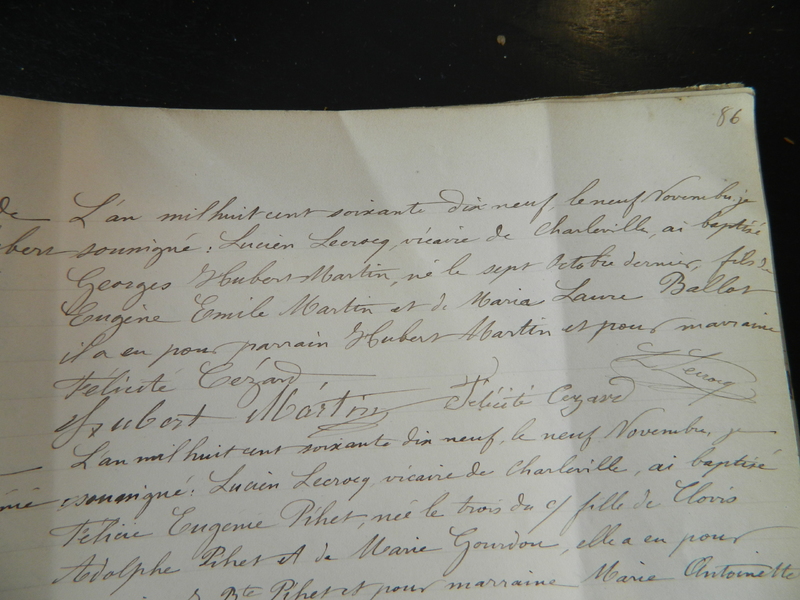 86
de L'an mil huit cent soixante dix neuf, le neuf Novembre, je
bert soussigné : Lucien Lecrocq, vicaire de Charleville, ai baptisé
Georges Hubert Martin, né le sept Octobre dernier, fils de
Eugène Emile Martin et de Maria Laure Ballot
il a eu pour parrain Hubert Martin et pour marraine
Félicité Cézard
L Lecrocq
Hubert Martin Félicité Cezard
L'an mil huit cent soixante dix neuf, le neuf Novembre, je
soussigné : Lucien Lecrocq vicaire de Charleville, ai baptisé
Félicie Eugenie Pihet, née le trois du c/ fille de Clovis
Adolphe Pihet et de Marie Gourdon, elle a eu pour
Bte Pihet et pour marraine Marie Antoinette